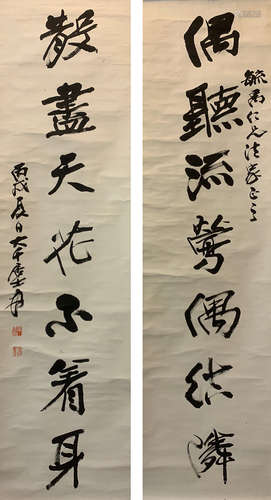 偶聽流鶯偶結隣
毓仁兄法家正之
散盡天花不着身
丙戌夏日大千居士爰